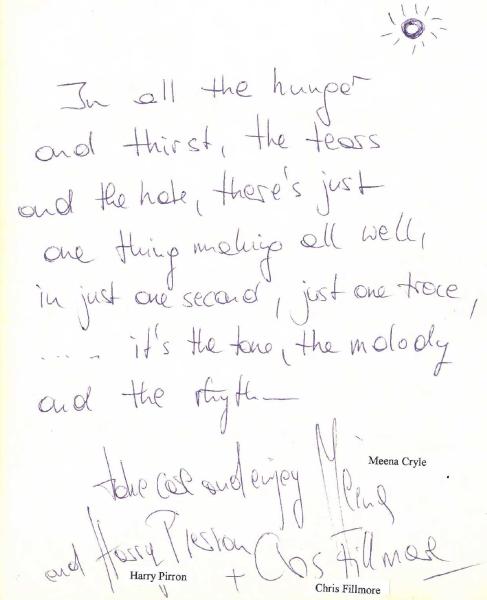 In all the hunger
and thirst, the tears
and the hate, there's just
one thing making all well,
in just one second, just one trace,
.... it's the tone, the molody
and the rhythm
take care and enjoy Meena
Meena Cryle
and Harry Pirron
Harry Pirron
+ Chris Fillmore
Chris Fillmore